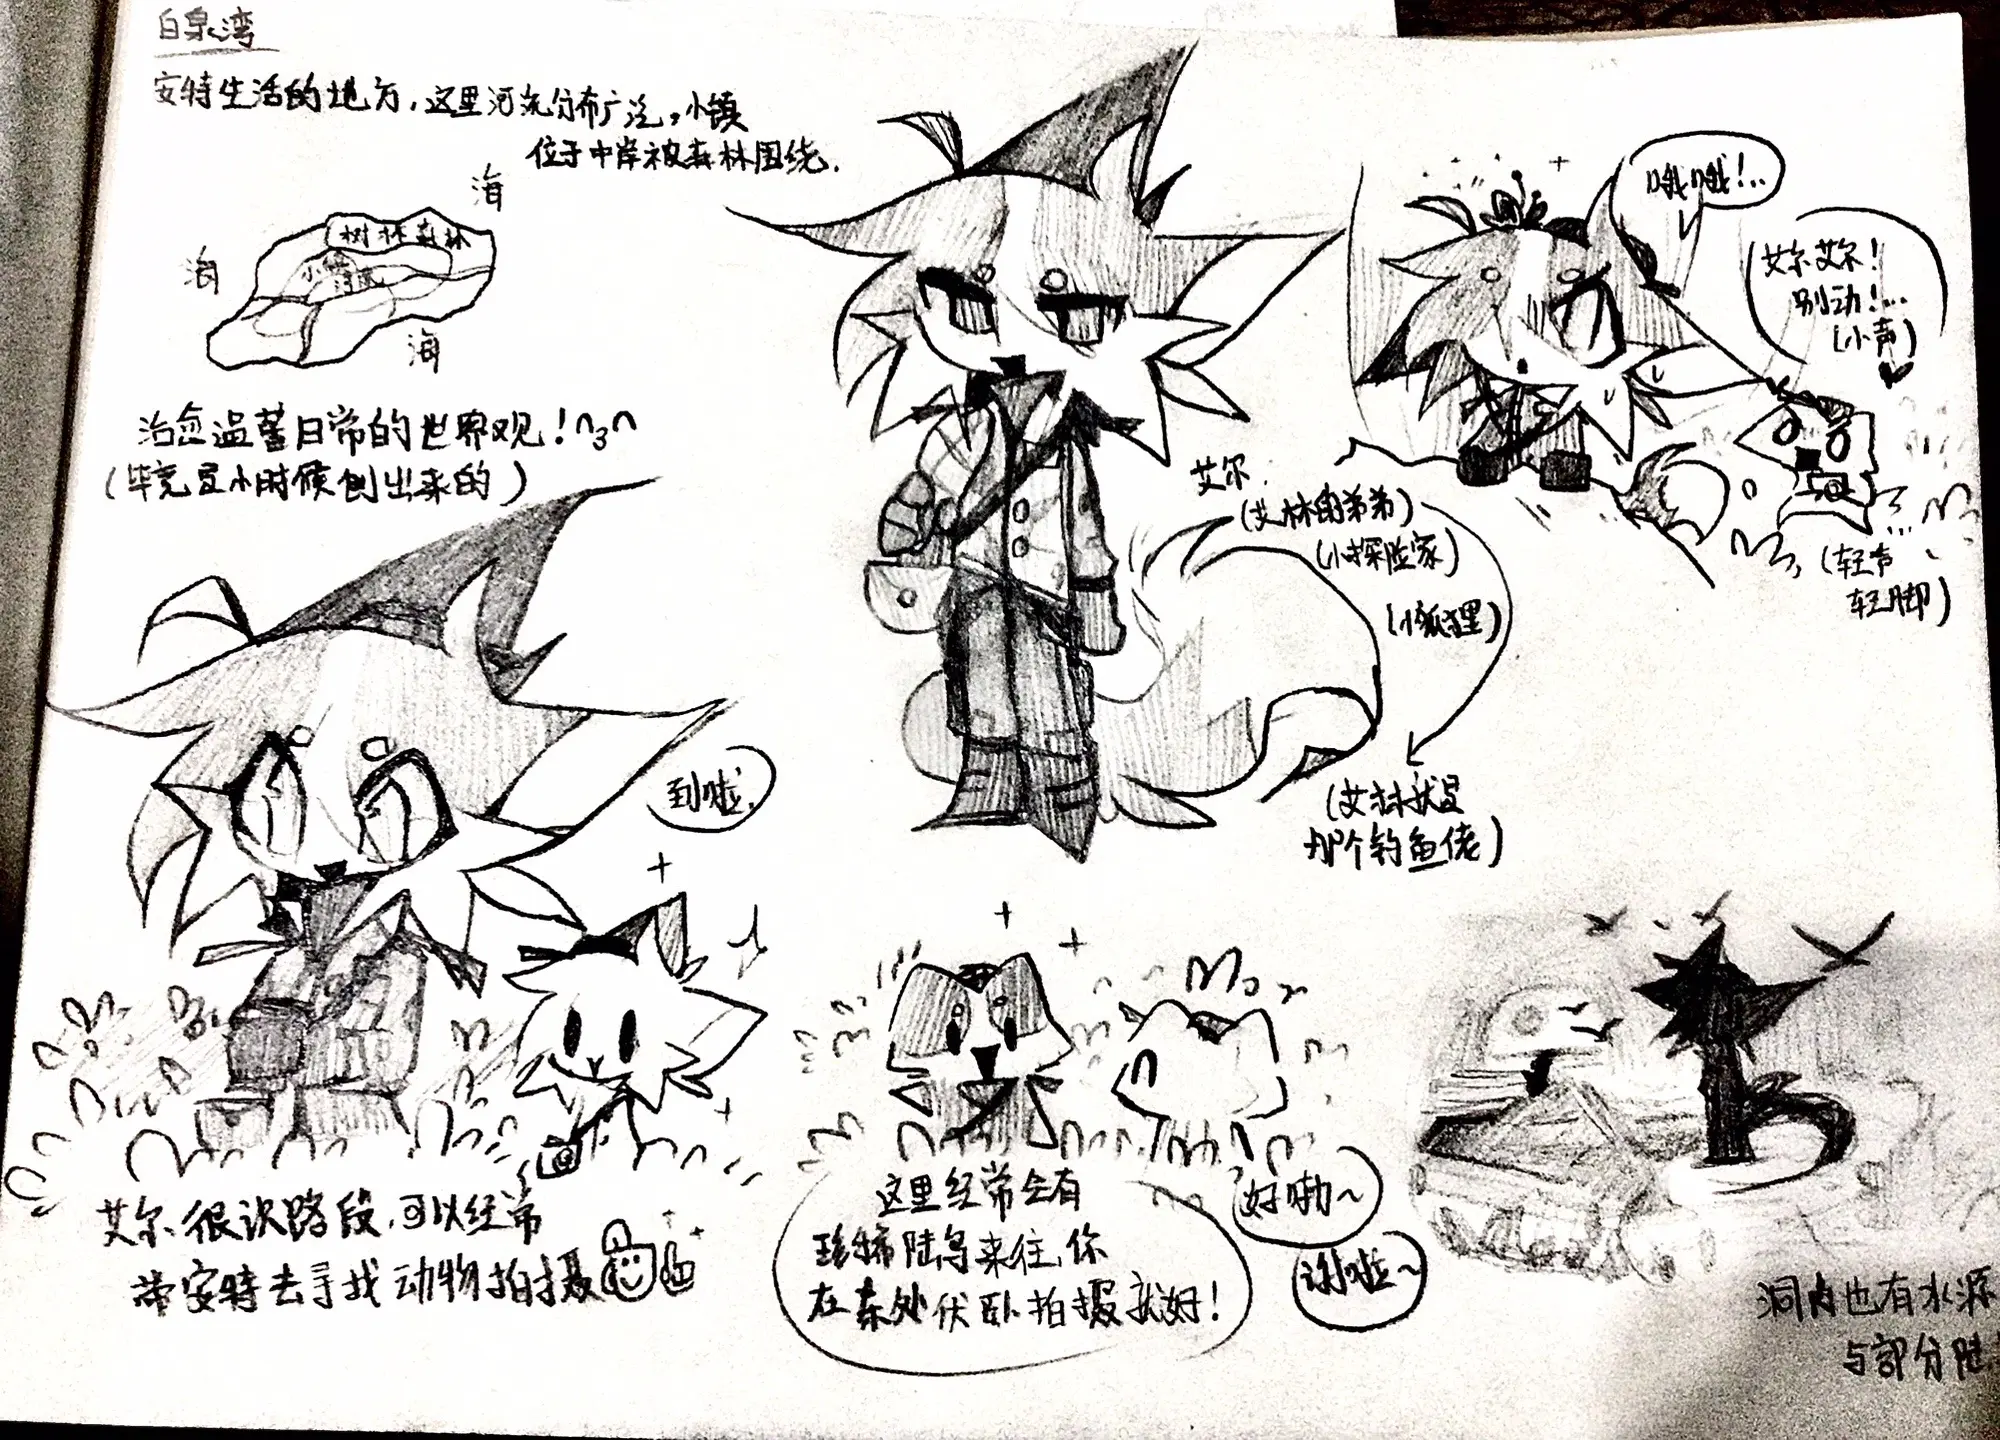 白泉湾
安特生活的地方，这里河流分布广泛，小镇
位于中岸被森林围绕.
海
树林森林
海
小镇
海
治愈温馨日常的世界观！
（毕竟是小时候创出来的）
哦哦！..
艾尔艾尔！
别动！...
（小声）
（轻声
轻脚）
艾尔.
（艾林的弟弟）
（小探险家）
（小狐狸）
（艾林就是
那个钓鱼佬）
到啦.
艾尔很识路段，可以经常
带安特去寻找动物拍摄
这里经常会有
珍稀陆鸟来往，你
在东处伏卧拍摄就好！
好嘞～
谢啦～
洞内也有水源
与部分陆